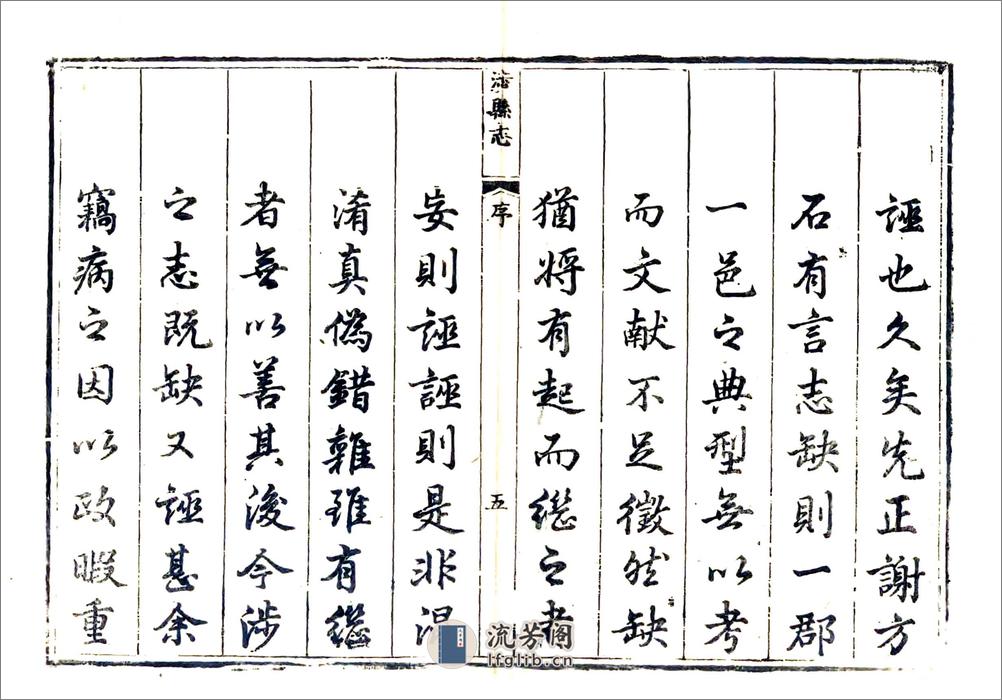 誣也久矣先正謝方
石有言志缺則一郡
一邑之典型無以考
而文献不足徵然缺
猶将有起而繼之者
涉縣志
序
五
妄則誣誣則是非混
淆真偽錯雜雖有繼
者無以善其後今涉
之志既缺又誣甚余
竊病之因以政暇重
流芳阁
lfglib.cn